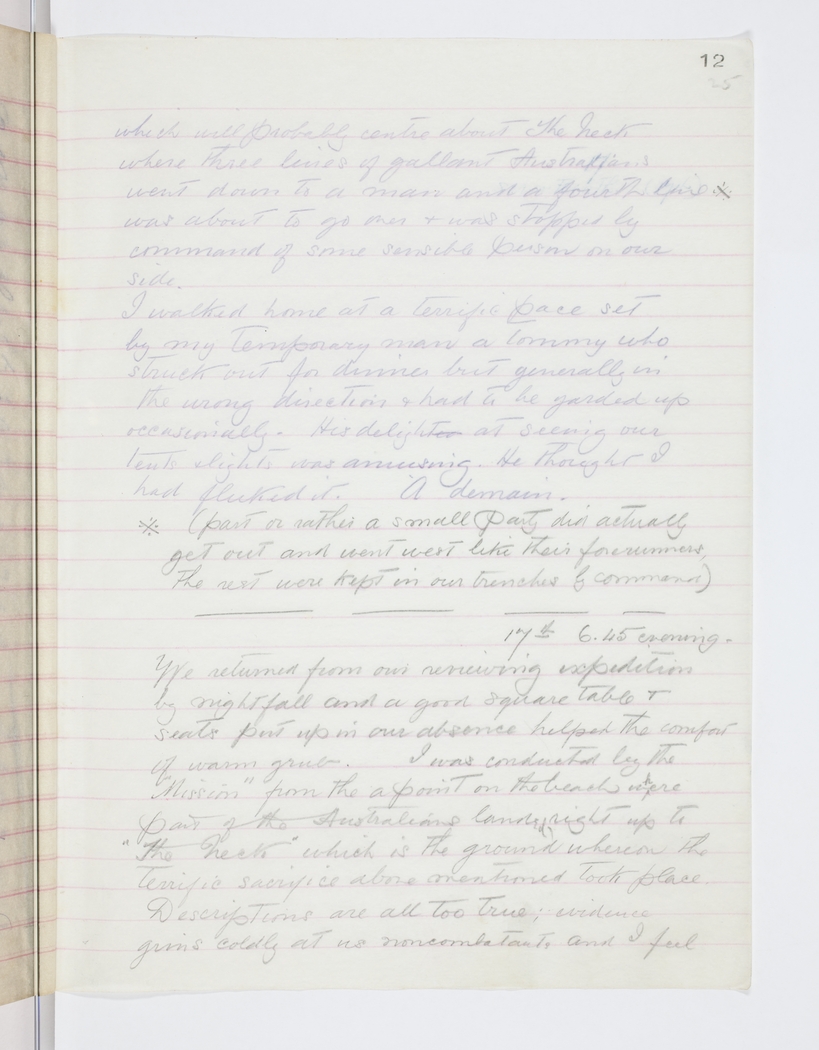 12
25
which will probably centre about The Neck
where three lines of gallant Australians
went down to a man and a fourth line ※
was about to go over & was stopped by
command of some sensible person on our
side.
I walked home at a terrific pace set
by my temporary man a tommy who
struck out for dinner but generally in
the wrong direction & had to be yarded up
occasionally. His delight at seeing our
tents & lights was amusing. He thought I
had fluked it. A demain.
※ (part or rather a small party did actually
get out and went west like their forerunners,
the rest were kept in our trenches by command)
17th 6.45 evening.
We returned from our reviewing expedition
by nightfall and a good square table &
seats put up in our absence helped the comfort
of warm grub. I was conducted by the
"Mission" from the a point on the beach where
part of the Australians landed, right up to
"The Neck" which is the ground whereon the
terrific sacrifice above mentioned took place.
Descriptions are all too true; evidence
grins coldly at us noncombatants and I feel